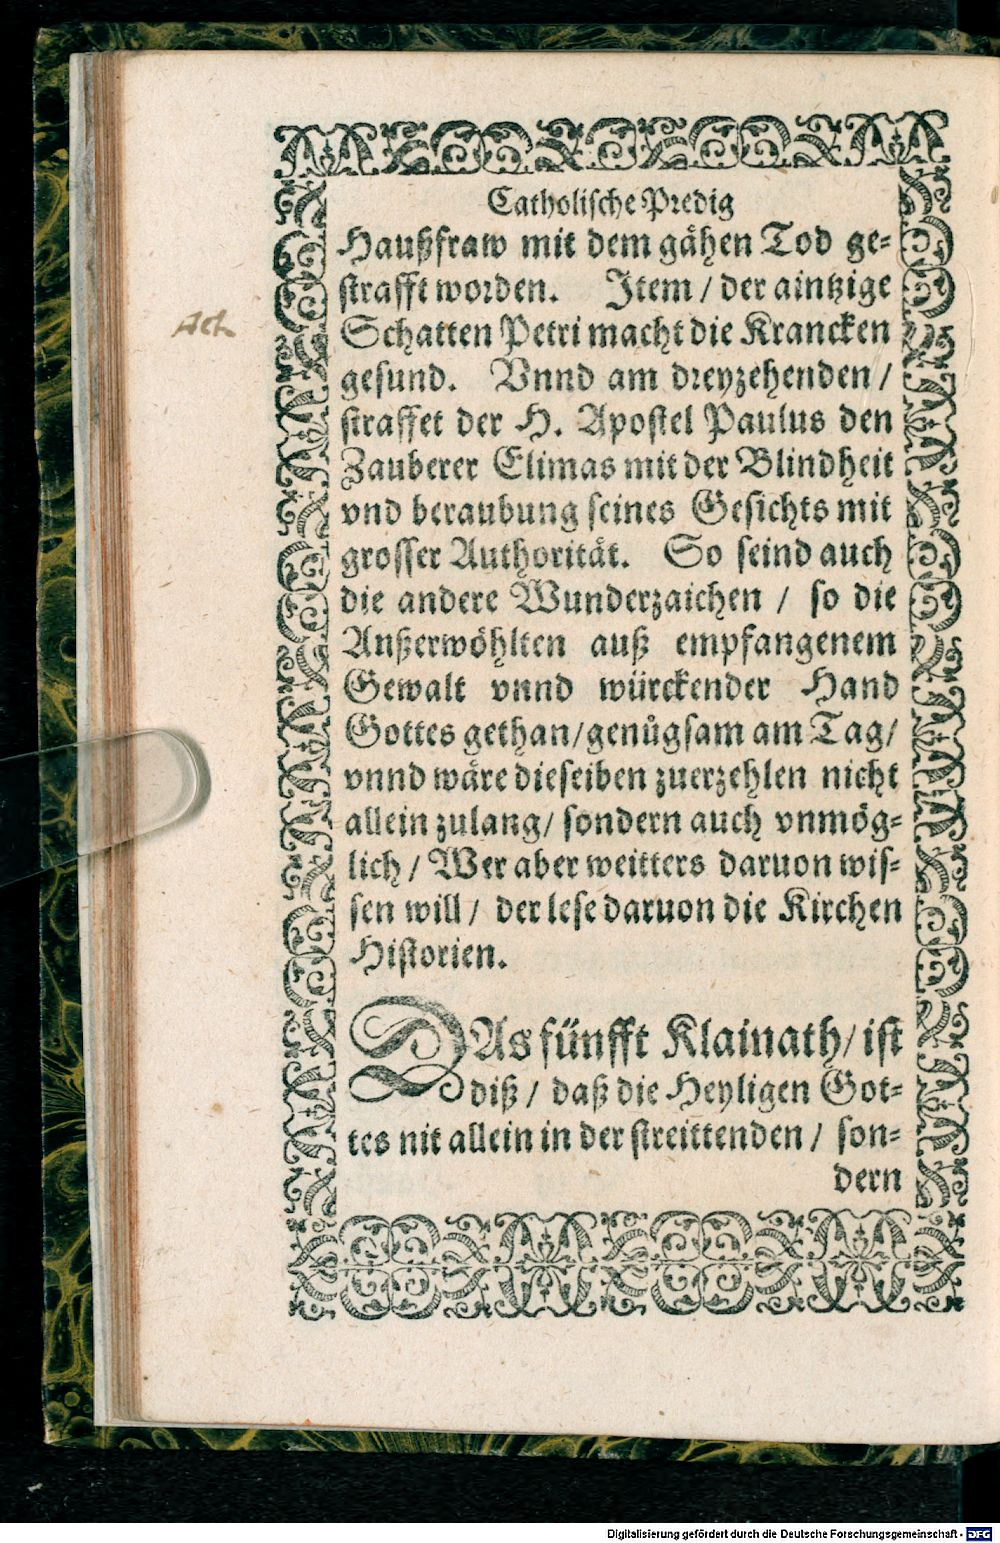 Catholische Predig
Haußfraw mit dem gähen Tod ge-
strafft worden. Item / der aintzige
Schatten Petri macht die Krancken
gesund. Vnnd am dreyzehenden /
straffet der H. Apostel Paulus den
Zauberer Elimas mit der Blindheit
vnd beraubung seines Gesichts mit
grosser Authoritåt. So seind auch
die andere Wunderzaichen / so die
Außerwöhlten auß empfangenem
Gewalt vnnd würckender Hand
Gottes gethan/genůgsam am Tag/
vnnd wäre dieselben zuerzehlen nicht
allein zulang/ sondern auch vnmög-
lich / Wer aber weitters daruon wis-
sen will / der lese daruon die Kirchen
Historien.
DAs fünfft Klainath/ ist
diß / daß die Heyligen Got-
tes nit allein in der streittenden / son-
dern
Digitalisierung gefördert durch die Deutsche Forschungsgemeinschaft - DFG